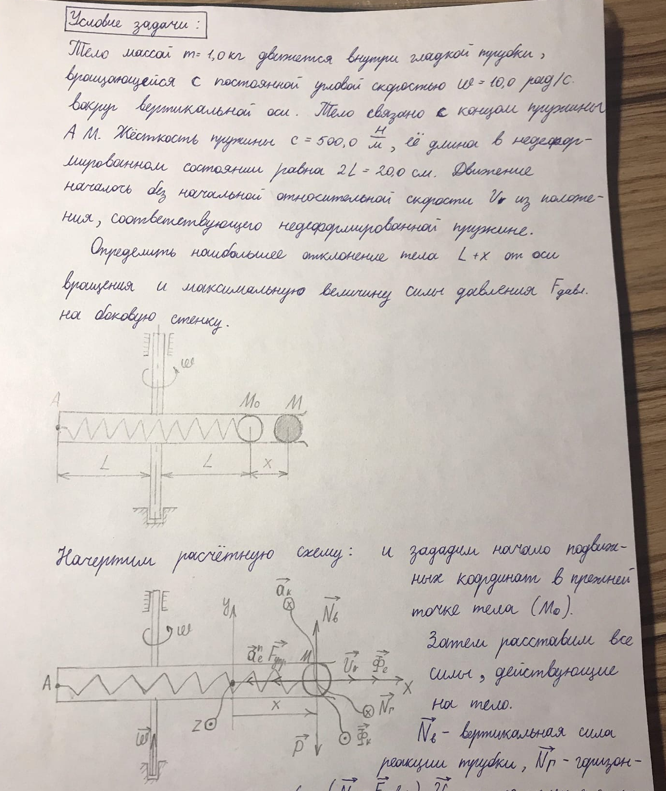 Условие задачи:
Тело массой m=1,0 кг движется внутри гладкой трубки,
вращающейся с постоянной угловой скоростью ω=10,0 рад/с.
вокруг вертикальной оси. Тело связано с концом пружины
АМ. Жёсткость пружины c=500,0 Н/м, её длина в недефор-
мированном состоянии равна 2L=20,0 см. Движение
началось без начальной относительной скорости Vr из положе-
ния, соответствующего недеформированной пружине.
Определить наибольшее отклонение тела L+x от оси
вращения и максимальную величину силы давления Fдавл.
на боковую стенку.
ω
A M₀ M
L L x
Начертим расчётную схему: и зададим начало подвиж-
ных координат в прежней
точке тела (M₀).
Затем расставим все
силы, действующие
на тело.
Nв - вертикальная сила
реакции трубки, Nг - горизон-
ω y aк Nв
A aeⁿ Fупр. M Vr Фe x
z x Nг
ω P Фк